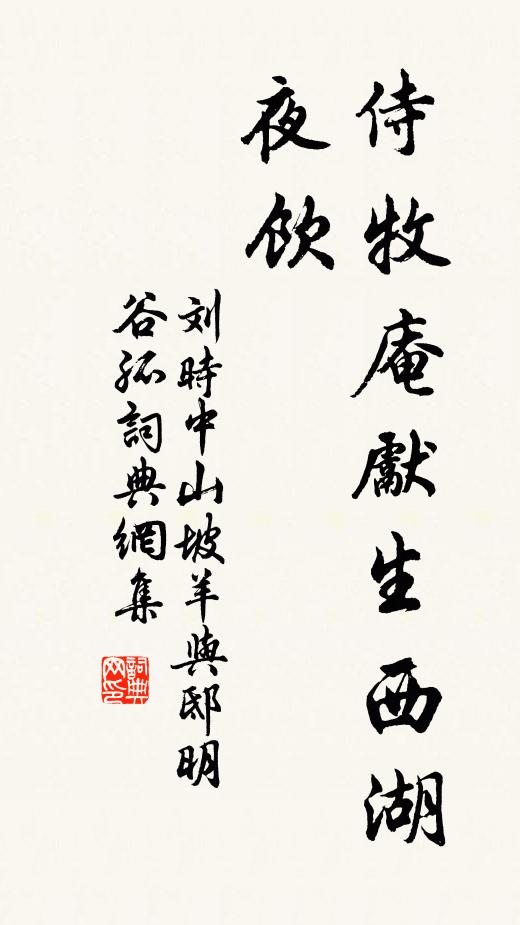 侍牧庵獻生西湖
夜飲
刘時中山坡羊與邸明
谷孤詞典網集
詞典网印